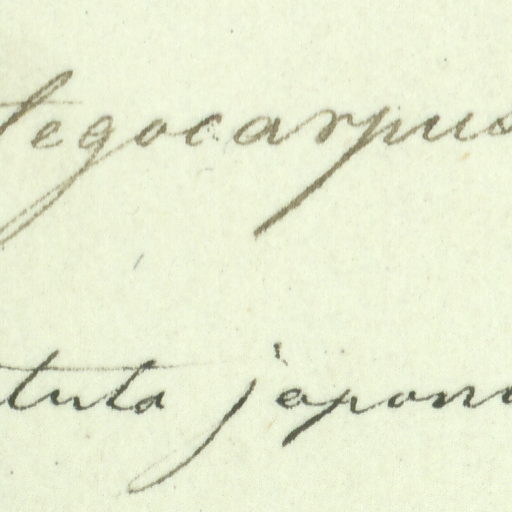 tegocarpus
tula japon